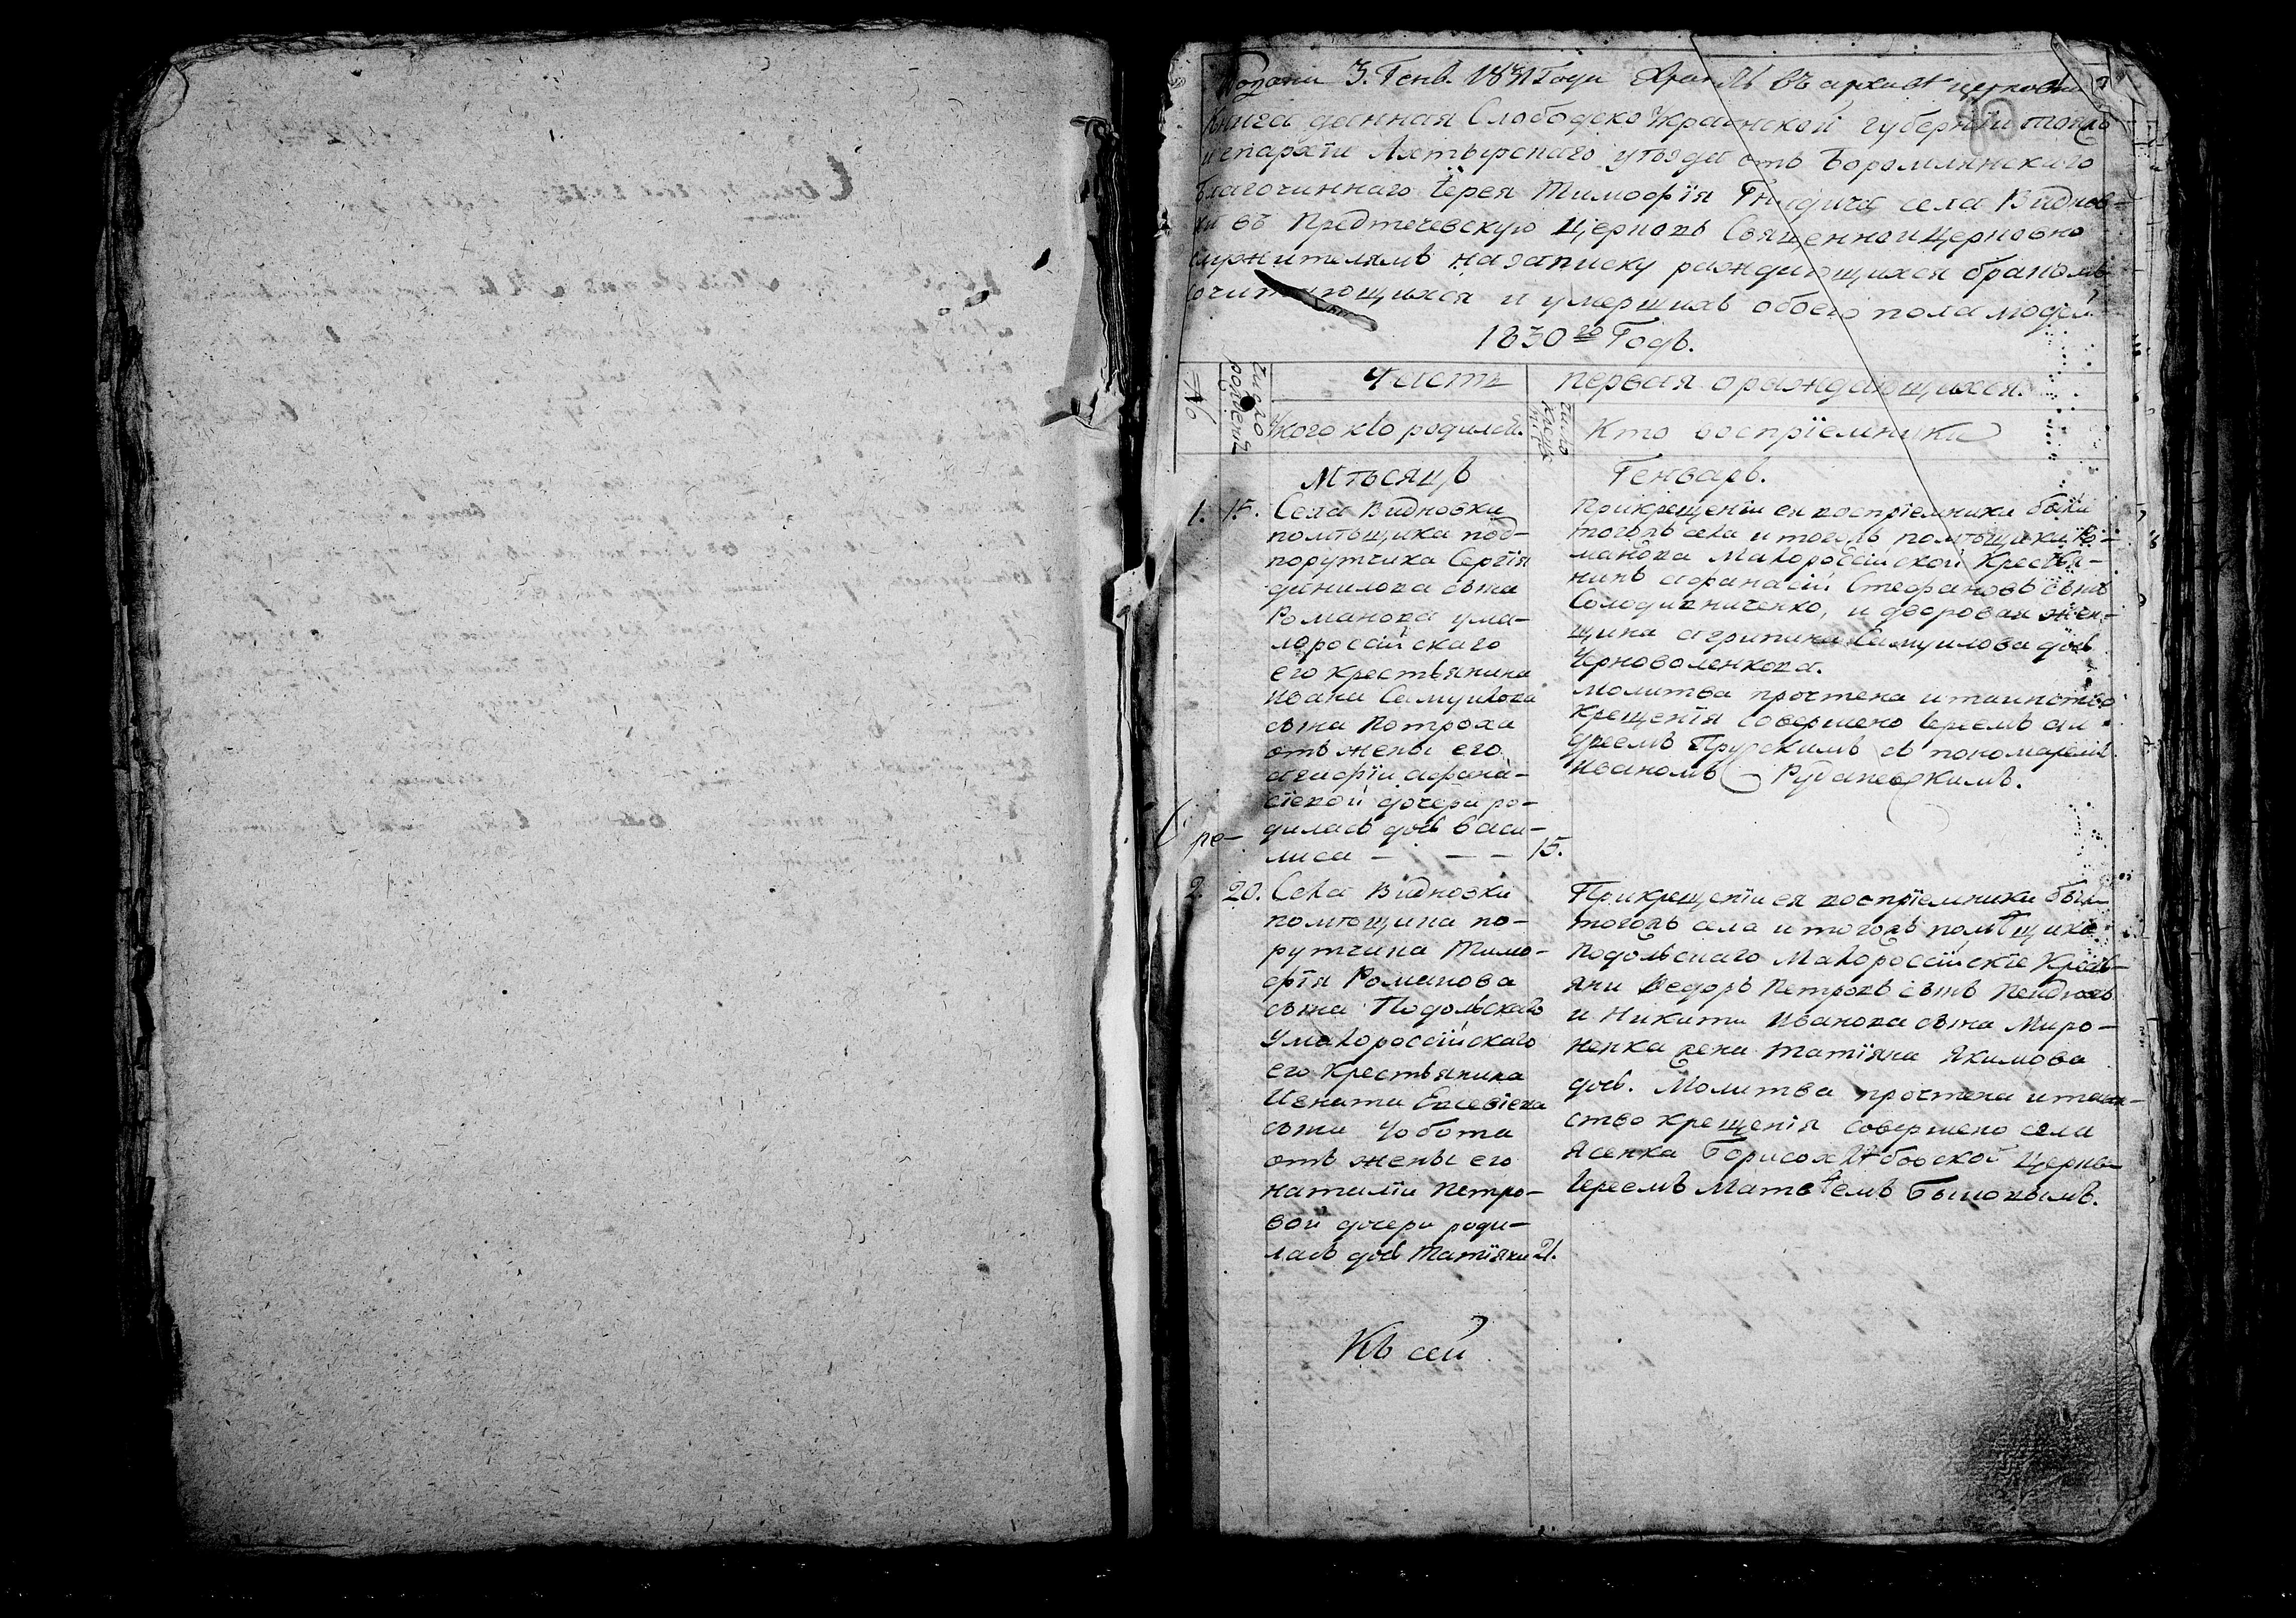 Подана 3. Генв. 1831 Года Хранить въ архивѣ церковн
Книга данная Слободско Украинской губернїи тояжъ
и епархїи Ахтырскаго уѣзда отъ Боромлянскаго
Благочиннаго Іерея Тимофїя Гнѣдича села Видновки
въ Предтечевскую Церковь Священноицерковно
служителямъ на записку раждающихся бракомъ
сочитающихся и умершихъ обоего пола людей
1830го Годъ.
№ число рожденія Часть первая о раждающихся.
У кого кто родился. число Кто воспрїемники
Мѣсяцъ Генварь.
1. 15. Села Видновки
помѣщика под-
порутчика Сергїя
Данилова сына
Романова у ма-
лороссїйскаго
его крестьянина
Ивана Самуилова
сына Потроха
отъ жены его
Агафїи Афана-
сїевой дочери ро-
дилась дочь Васи-
лиса - - - 15.
При крещенїи ея воспрїемники были
тогожъ села и тогожъ помѣщика Ро-
манова Малороссїйской Крестья-
нинъ Афанасїй Стефановъ сынъ
Солодивниченко, и дворовая жен-
щина Агрипина Самуилова дочь
Черноволенкова.
Молитва прочтена и таинство
крещенїя совершено Іереемъ Ан
дреемъ Прускимъ съ пономаремъ
Иваномъ Рубаневскимъ.
ре-
2. 20. Села Видновки
помѣщика по-
рутчика Тимо-
фїя Романова
сына Подольскаго
у малороссїйскаго
его крестьянина
Игната Евсевїева
сына Чобота
отъ жены его
Наталїи Петро-
вой дочери роди-
лась дочь Татїяна 21.
При крещенїи ея воспрїемники были
тогожъ села и тогожъ помѣщика
Подольскаго Малороссїйскїе Крестъ-
яни Ѳедоръ Петровъ сынъ
и Никиты Иванова сына Миро-
ненка жена Татїяна Якимова
дочь. Молитва прочтена и таин-
ство крещенїя совершено села
Ясенка Борисоглѣбовской Церкви
Іереемъ Матвѣемъ
Къ сей